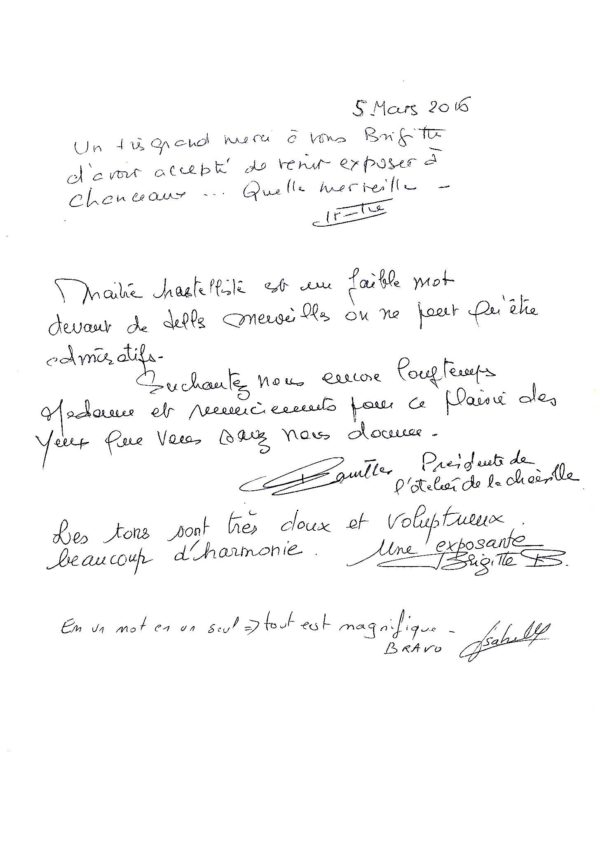 5 Mars 2016
Un très grand merci à vous Brigitte
d'avoir accepté de venir exposer à
Chanceaux ... Quelle merveille -
Maitre Pastelliste est un faible mot
devant de tells merveilles on ne peut qu'être
admiratifs.
Enchantez nous encore longtemps
Madame et remerciements pour ce plaisir des
yeux que vous savez nous donner.
Présidente de
l'atelier de la choisille
Les tons sont très doux et voluptueux.
beaucoup d'harmonie. Une exposante
Brigitte B.
En un mot en un seul => tout est magnifique -
BRAVO Isabelle